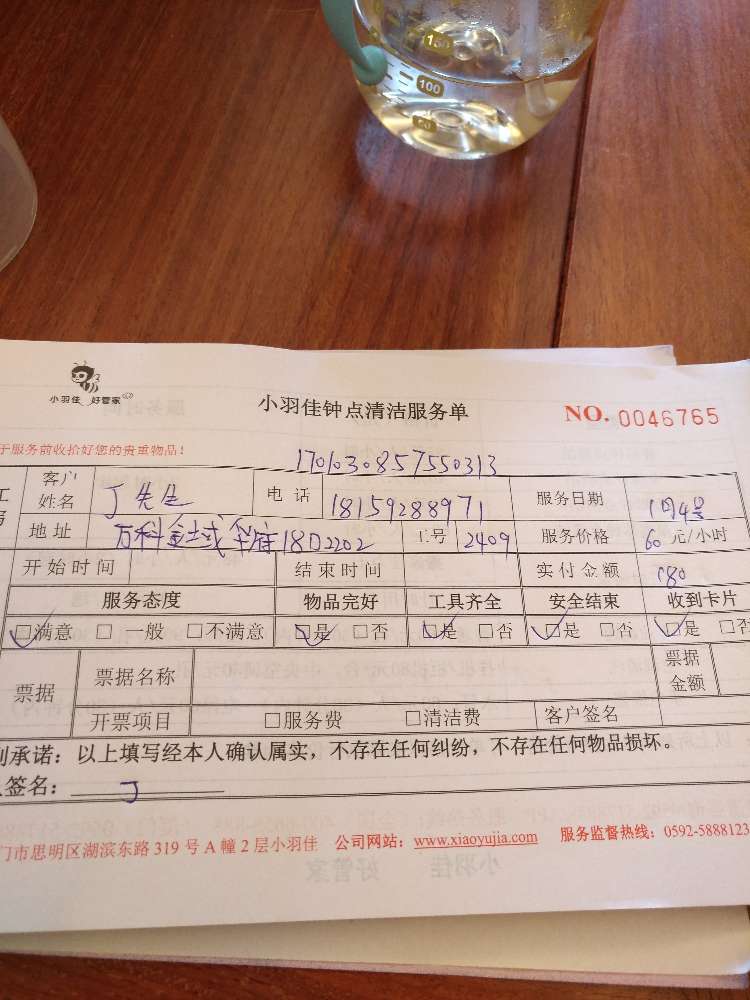 150
100
50
小羽佳 好管家
小羽佳钟点清洁服务单
NO. 0046765
于服务前收拾好您的贵重物品!
1701030857550313
工 客户姓名 丁先生 电 话 18159288971 服务日期 1月4号
地址 万科金域华府18D2202 工号 2409 服务价格 60 元/小时
开始时间 结束时间 实付金额 180
服务态度 物品完好 工具齐全 安全结束 收到卡片
☑满意 □一般 □不满意 ☑是 □否 ☑是 □否 ☑是 □否 ☑是 □否
票据 票据名称 票据金额
开票项目 □服务费 □清洁费 客户签名
承诺:以上填写经本人确认属实,不存在任何纠纷,不存在任何物品损坏。
签名: 丁
门市思明区湖滨东路 319 号 A 幢 2 层小羽佳 公司网站:www.xiaoyujia.com 服务监督热线:0592-5888123